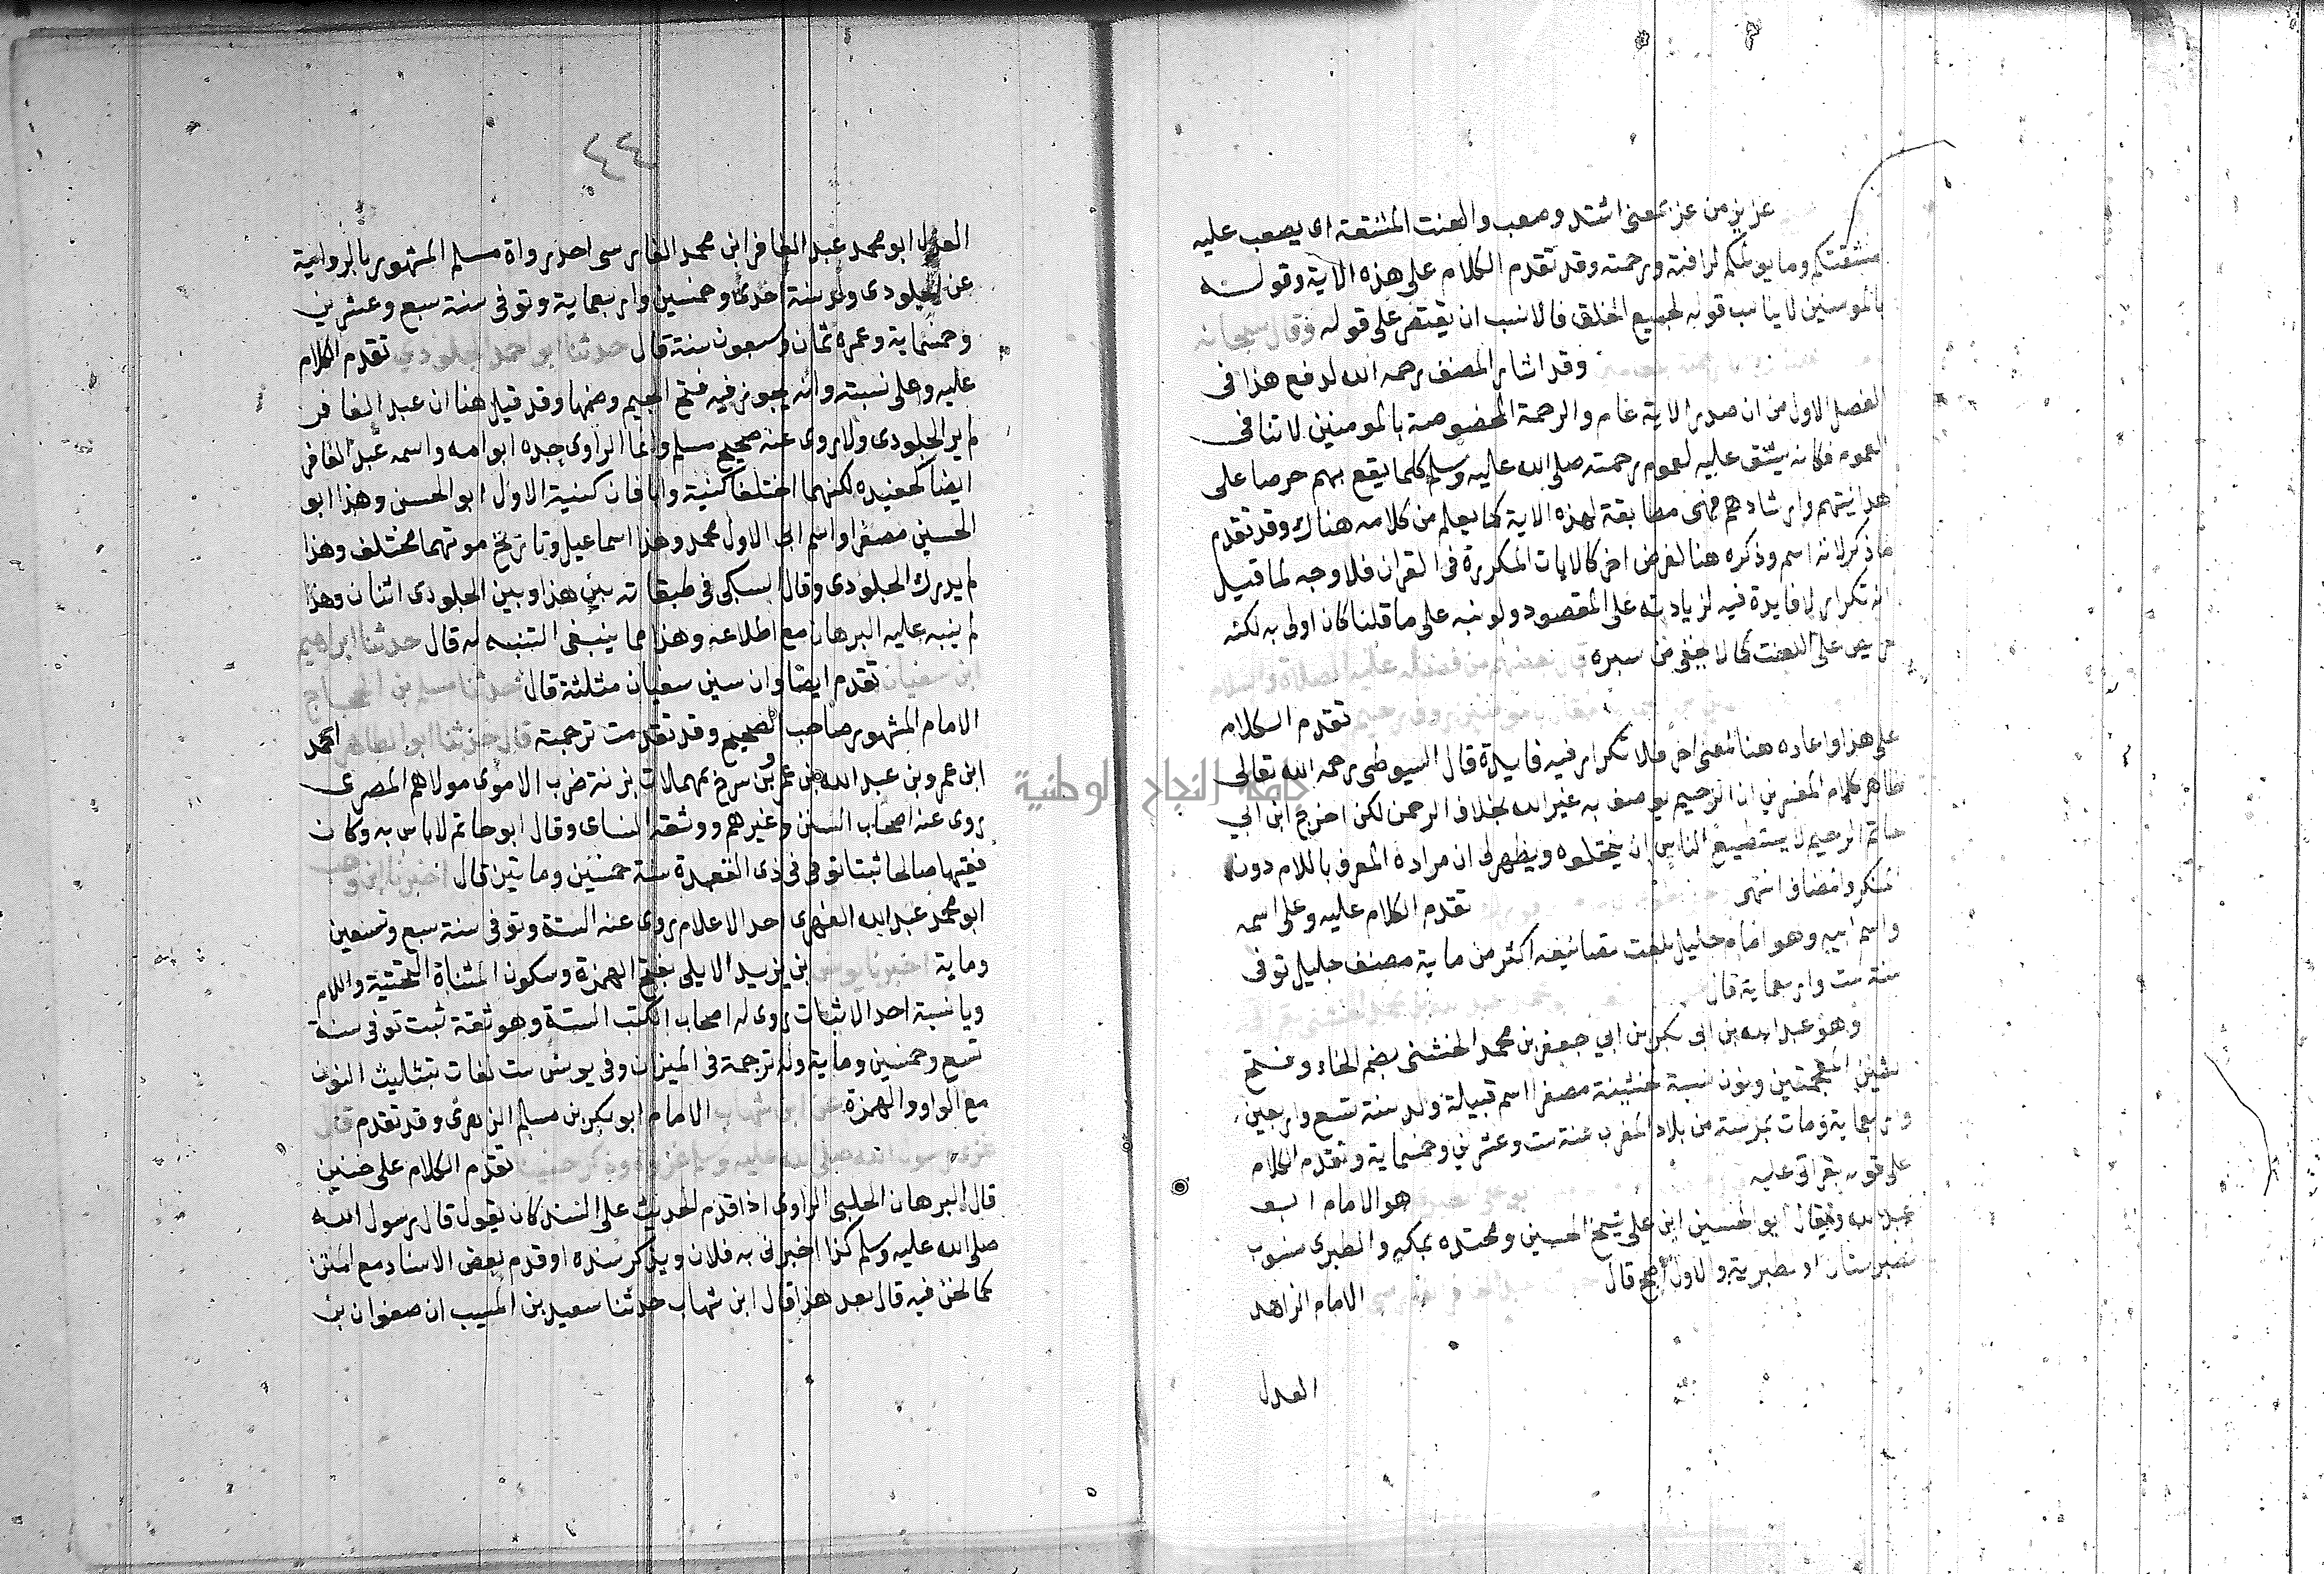 عزيز من عز بمعنى اشتد وصعب والعنت المشقة اى يصعب عليه
مشقتكم وما يولمكم لرافته ورحمته وقد تقدم الكلام على هذه الاية وقوله
بالمومنين لا يناسب قوله لجميع الخلق فالانسب ان يقتصر على قوله وقال سبحانه
وقد اشار المصنف رحمه الله لدفع هذا فى
الفصل الاول من ان صدر الاية عام والرحمة المخصوصة بالمومنين لا تنافى
العموم فكانه يشق عليه لعموم رحمته صلى الله عليه وسلم كلما يقع بهم حرصا على
هدايتهم وارشادهم فهى مطابقة لهذه الاية كما يعلم من كلامه هناك وقد تقدم
ما ذكر لانه اسم وذكره هنا لغرض اخر كالايات المكررة فى القران فلا وجه لما قيل
انه تكرار لا فايدة فيه لزيادته على المقصود ولو نبه على ما قلنا كان اولى به لكنه
حريص على التعنت كما لا يخفى من سبره قال بعضهم من فضله عليه الصلاة والسلام
تقدم الكلام
على هذا واعاده هنا لمعنى اخر فلا تكرار فيه فايدة قال السيوطى رحمه الله تعالى
ظاهر كلام المفسرين ان الرحيم يوصف به غير الله بخلاف الرحمن لكن اخرج ابن ابي
حاتم الرحيم لا يستطيع الناس ان ينتحلوه ويظهر لى ان مراده المعرف باللام دون
المنكر والمضاف انتهى تقدم الكلام عليه وعلى اسمه
واسم ابيه وهو امام جليل بلغت تصانيفه اكثر من ماية مصنف جليل توفى
سنة ست واربعماية قال
وهو عبد الله بن ابى بكر بن ابي جعفر بن محمد الخشنى بضم الخاء وفتح
الشين المعجمتين ونون نسبة خشينة مصغرا اسم قبيلة ولد سنة تسع واربعين
واربعماية ومات بمرسية من بلاد المغرب سنة ست وعشرين وخمسماية وتقدم الكلام
على قوله بقراتى عليه هو الامام ابو
عبد الله ويقال ابو الحسين ابن على شيخ الحسين ومحتده بمكه والطبرى منسوب
لطبرستان او طبرية والاول اصح قال الامام الزاهد
العدل
٤٤
العدل ابو محمد عبد الغافر ابن محمد الفارسى احد رواة مسلم المشهور بالرواية
عن الجلودى ولد سنة احدى وخمسين واربعماية وتوفى سنة سبع وعشرين
وخمسماية وعمره ثمان وسبعون سنة قال حدثنا ابو احمد الجلودي تقدم الكلام
عليه وعلى نسبته وانه يجوز فيه فتح الجيم وضمها وقد قيل هنا ان عبد الغافر
لم ير الجلودى ولا روى عنه صحيح مسلم وانما الراوى جده ابو امه واسمه عبد الغافر
ايضا كحفيده لكنهما اختلفا كنية وابا فان كنية الاول ابو الحسن وهذا ابو
الحسين مصغرا واسم ابى الاول محمد وهذا اسماعيل وتاريخ موتهما مختلف وهذا
لم يدرك الجلودى وقال السبكى فى طبقاته بين هذا وبين الجلودى اثنان وهذا
لم ينبه عليه البرهان مع اطلاعه وهذا مما ينبغى التنبه له قال حدثنا ابراهيم
ابن سفيان تقدم ايضا وان سين سفيان مثلثة قال حدثنا مسلم بن الحجاج
الامام المشهور صاحب الصحيح وقد تقدمت ترجمته قال حدثنا ابو الطاهر احمد
ابن عمرو بن عبد الله بن عمرو بن سرح بمهملات بزنة ضرب الاموى مولاهم المصرى
روى عنه اصحاب السنن وغيرهم ووثقه النساى وقال ابو حاتم لا باس به وكان
فقيها صالحا ثبتا توفى فى ذى القعدة سنة خمسين وماتين قال اخبرنا ابن وهب
ابو محمد عبد الله الفهرى احد الاعلام روى عنه الستة وتوفى سنة سبع وتسعين
وماية اخبرنا يونس بن يزيد الايلى بفتح الهمزة وسكون المثناة التحتية واللام
ويا نسبة احد الاثبات روى له اصحاب الكتب الستة وهو ثقة ثبت توفى سنة
تسع وخمسين وماية وله ترجمة فى الميزان وفى يونس ست لغات بتثليث النون
مع الواو والهمزة عن ابن شهاب الامام ابو بكر بن مسلم الزهرى وقد تقدم قال
غزا رسول الله صلى الله عليه وسلم غزوة وذكر حنينا تقدم الكلام على حنين
قال البرهان الحلبى الراوى اذا قدم الحديث على السند كان يقول قال رسول الله
صلى الله عليه وسلم كذا اخبرنى به فلان ويذكر سنده او قدم بعض الاسناد مع المتن
كما نحن فيه قال بعد هذا قال ابن شهاب حدثنا سعيد بن المسيب ان صفوان بن
جامعة النجاح الوطنية